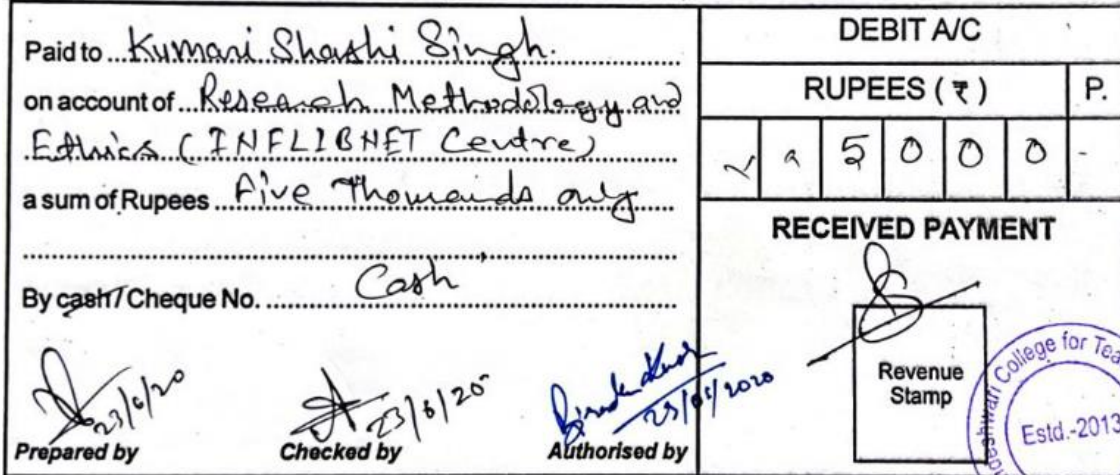 Paid to Kumari Shashi Singh.
on account of Research Methodology and
Ethics (INFLIBNET Centre)
a sum of Rupees Five Thousands only
By cash / Cheque No. Cash
23/6/20
Prepared by
23/6/20
Checked by
23/06/2020
Authorised by
DEBIT A/C
RUPEES (₹) P.
5 0 0 0 -
RECEIVED PAYMENT
Revenue
Stamp
College for Tea
Estd.-2013